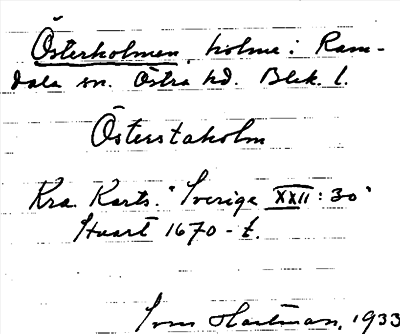 Österholmen, holme i Ram-
dala sn. Östra hd. Blek. l.
Österstaholm
Kra. Karts. "Sverige XXII: 30"
Stuart 1670-t.
Ivar Hartman, 1933